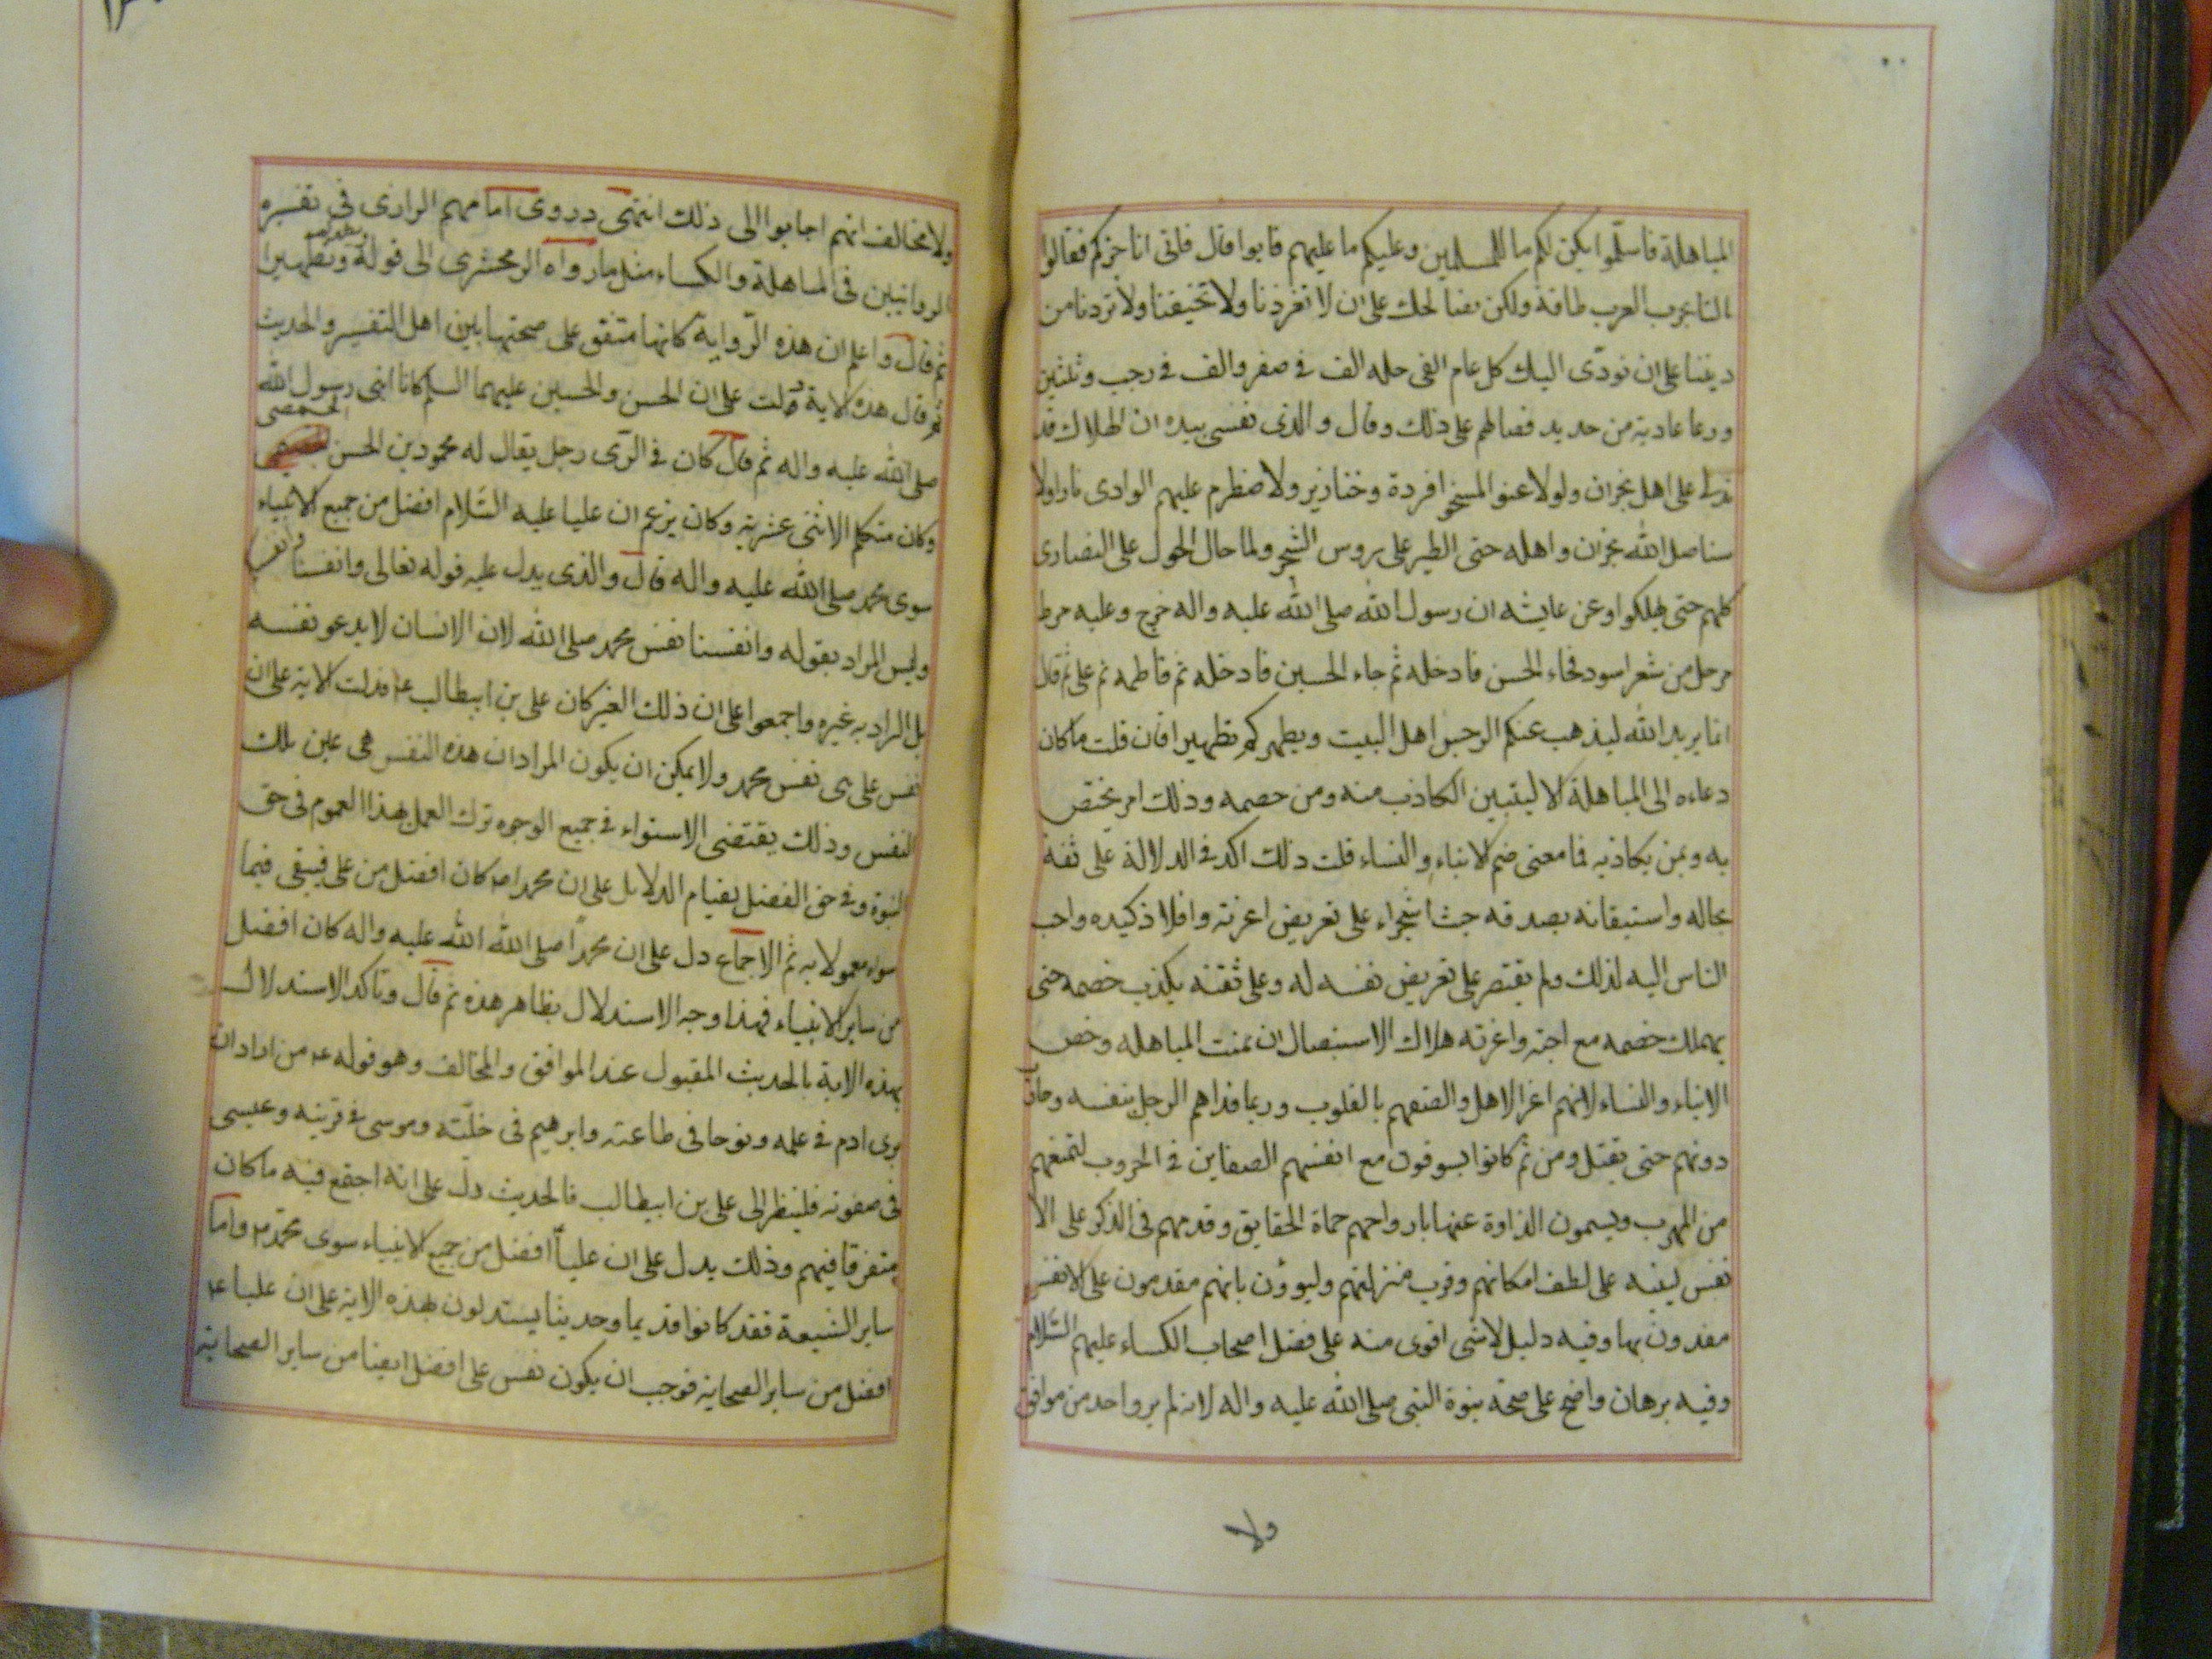 المباهلة فاسلموا يكن لكم ما للمسلمين وعليكم ما عليهم فابوا قال فانى اناجزكم فقالوا
مالنا بحرب العرب طاقة ولكن نصالحك على ان لا تغزونا ولا تخيفنا ولا تردنا من
ديننا على ان نودّى اليك كل عام الفى حله الف فى صفر والف فى رجب وثلثين
درعا عادية من حديد فصالحهم على ذلك وقال والذى نفسى بيده ان الهلاك قد
تدلى على اهل نجران ولو لاعنوا لمسخوا قردة وخنازير ولاضطرم عليهم الوادى نارا ولا
ستاصل الله نجران واهله حتى الطير على روس الشجر ولما حال الحول على النصارى
كلهم حتى يهلكوا وعن عايشه ان رسول الله صلى الله عليه واله خرج وعليه مرط
مرحل من شعر اسود فجاء الحسن فادخله ثم جاء الحسين فادخله ثم فاطمه ثم على ثم قال
انما يريد الله ليذهب عنكم الرجس اهل البيت ويطهركم تطهيرا فان قلت ما كان
دعاءه الى المباهلة الا ليتبين الكاذب منه ومن خصمه وذلك امر يختص
به وبمن يكاذبه فما معنى ضم الابناء والنساء قلت ذلك اكد فى الدلالة على ثقة
بحاله واستيقانه بصدقه حيث استجراء على تعريض اعزته وافلاذ كبده واحب
الناس اليه لذلك ولم يقتصر على تعريض نفسه له وعلى ثقته بكذب خصمه حتى
يهلك خصمه مع احبته واعزته هلاك الاستيصال ان تمت المباهله وخص
الابناء والنساء لانهم اعز الاهل والصقهم بالقلوب وربما فداهم الرجل بنفسه وحارب
دونهم حتى يقتل ومن ثم كانوا يسوقون مع انفسهم الضعاين فى الحروب لتمنعهم
من الهرب ويسمون الذاوة عنها بارواحهم حماة الحقايق وقدمهم فى الذكر على الا
نفس لينبه على لطف مكانهم وقرب منزلتهم وليوذن بانهم مقدمون على الانفس
مفدون بها وفيه دليل لا شى اقوى منه على فضل اصحاب الكساء عليهم السّلام
وفيه برهان واضح على صحة نبوة النبى صلى الله عليه واله لانه لم يرو احد من موافق
ولا
ولا مخالف انهم اجابوا الى ذلك انتهى وروى امامهم الرازى فى تفسيره
الروايتين فى المباهلة والكساء مثل ما رواه الزمخشرى الى قوله ويطهركم تطهيرا
ثم قال واعلم ان هذه الرّواية كانها متفق على صحتها بين اهل التفسير والحديث
ثم قال هذه الاية دلت على ان الحسن والحسين عليهما السلم كانا ابنى رسول الله
صلى الله عليه واله ثم قال كان فى الرّى رجل يقال له محمود بن الحسن الحمصى
وكان متكلم الاثنى عشرية وكان يزعم ان عليا عليه السّلام افضل من جميع الانبياء
سوى محمد صلى الله عليه واله قال والذى يدل عليه قوله تعالى وانفسنا وانفسكم
وليس المراد بقوله وانفسنا نفس محمد صلى الله لان الانسان لا يدعو نفسه
بل المراد به غيره واجمعوا على ان ذلك الغير كان على بن ابيطالب ع فدلت الاية على ان
نفس على هى نفس محمد ولا يمكن ان يكون المراد ان هذه النفس هى عين تلك
النفس وذلك يقتضى الاستواء فى جميع الوجوه ترك العمل بهذا العموم فى حق
النبوة وفى حق الفضل لقيام الدلايل على ان محمدا ص كان افضل من على فيبقى فيما
سواه معمولا به ثم الاجماع دل على ان محمدًا صلى الله الله عليه واله كان افضل
من ساير الانبياء فهذا وجه الاستدلال بظاهر هذه ثم قال وتاكد الاستدلال
بهذه الاية بالحديث المقبول عند الموافق والمخالف وهو قوله ع من اراد ان
يرى ادم فى علمه ونوحا فى طاعته وابرهيم فى خلّته وموسى فى قربته وعيسى
فى صفوته فلينظر الى على بن ابيطالب فالحديث دل على انه اجتمع فيه ما كان
متفرقا فيهم وذلك يدل على ان عليّا افضل من جميع الانبياء سوى محمّد ص واما
ساير الشيعة فقد كانوا قديما وحديثا يستدلون بهذه الاية على ان عليا ع
افضل من ساير الصحابة فوجب ان يكون نفس على افضل ايضا من ساير الصحابة